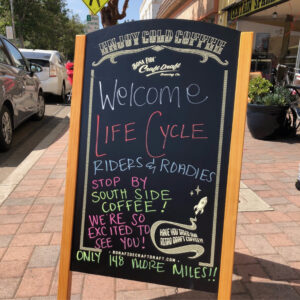 ENJOY COLD COFFEE
Craft Draft
Welcome
LIFE CYCLE
RIDERS & ROADIES
STOP BY
SOUTH SIDE
COFFEE!
WE'RE SO
EXCITED TO
SEE YOU!
HAVE YOU TRIED OUR
NITRO DRAFT COFFEE?!
ONLY 148 MORE MILES!!